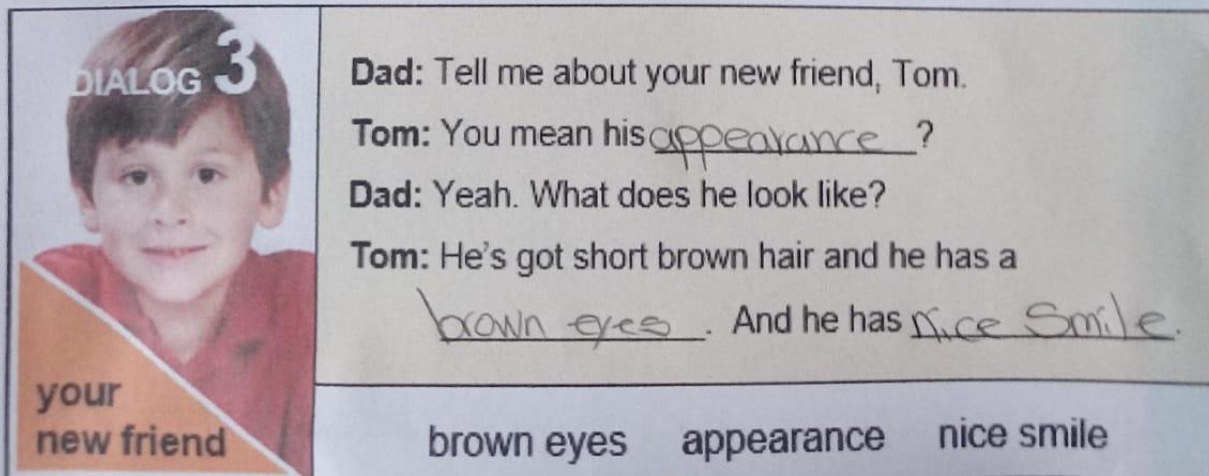 DIALOG 3
Dad: Tell me about your new friend, Tom.
Tom: You mean his appearance ?
Dad: Yeah. What does he look like?
Tom: He's got short brown hair and he has a
brown eyes . And he has nice Smile.
your
new friend
brown eyes appearance nice smile